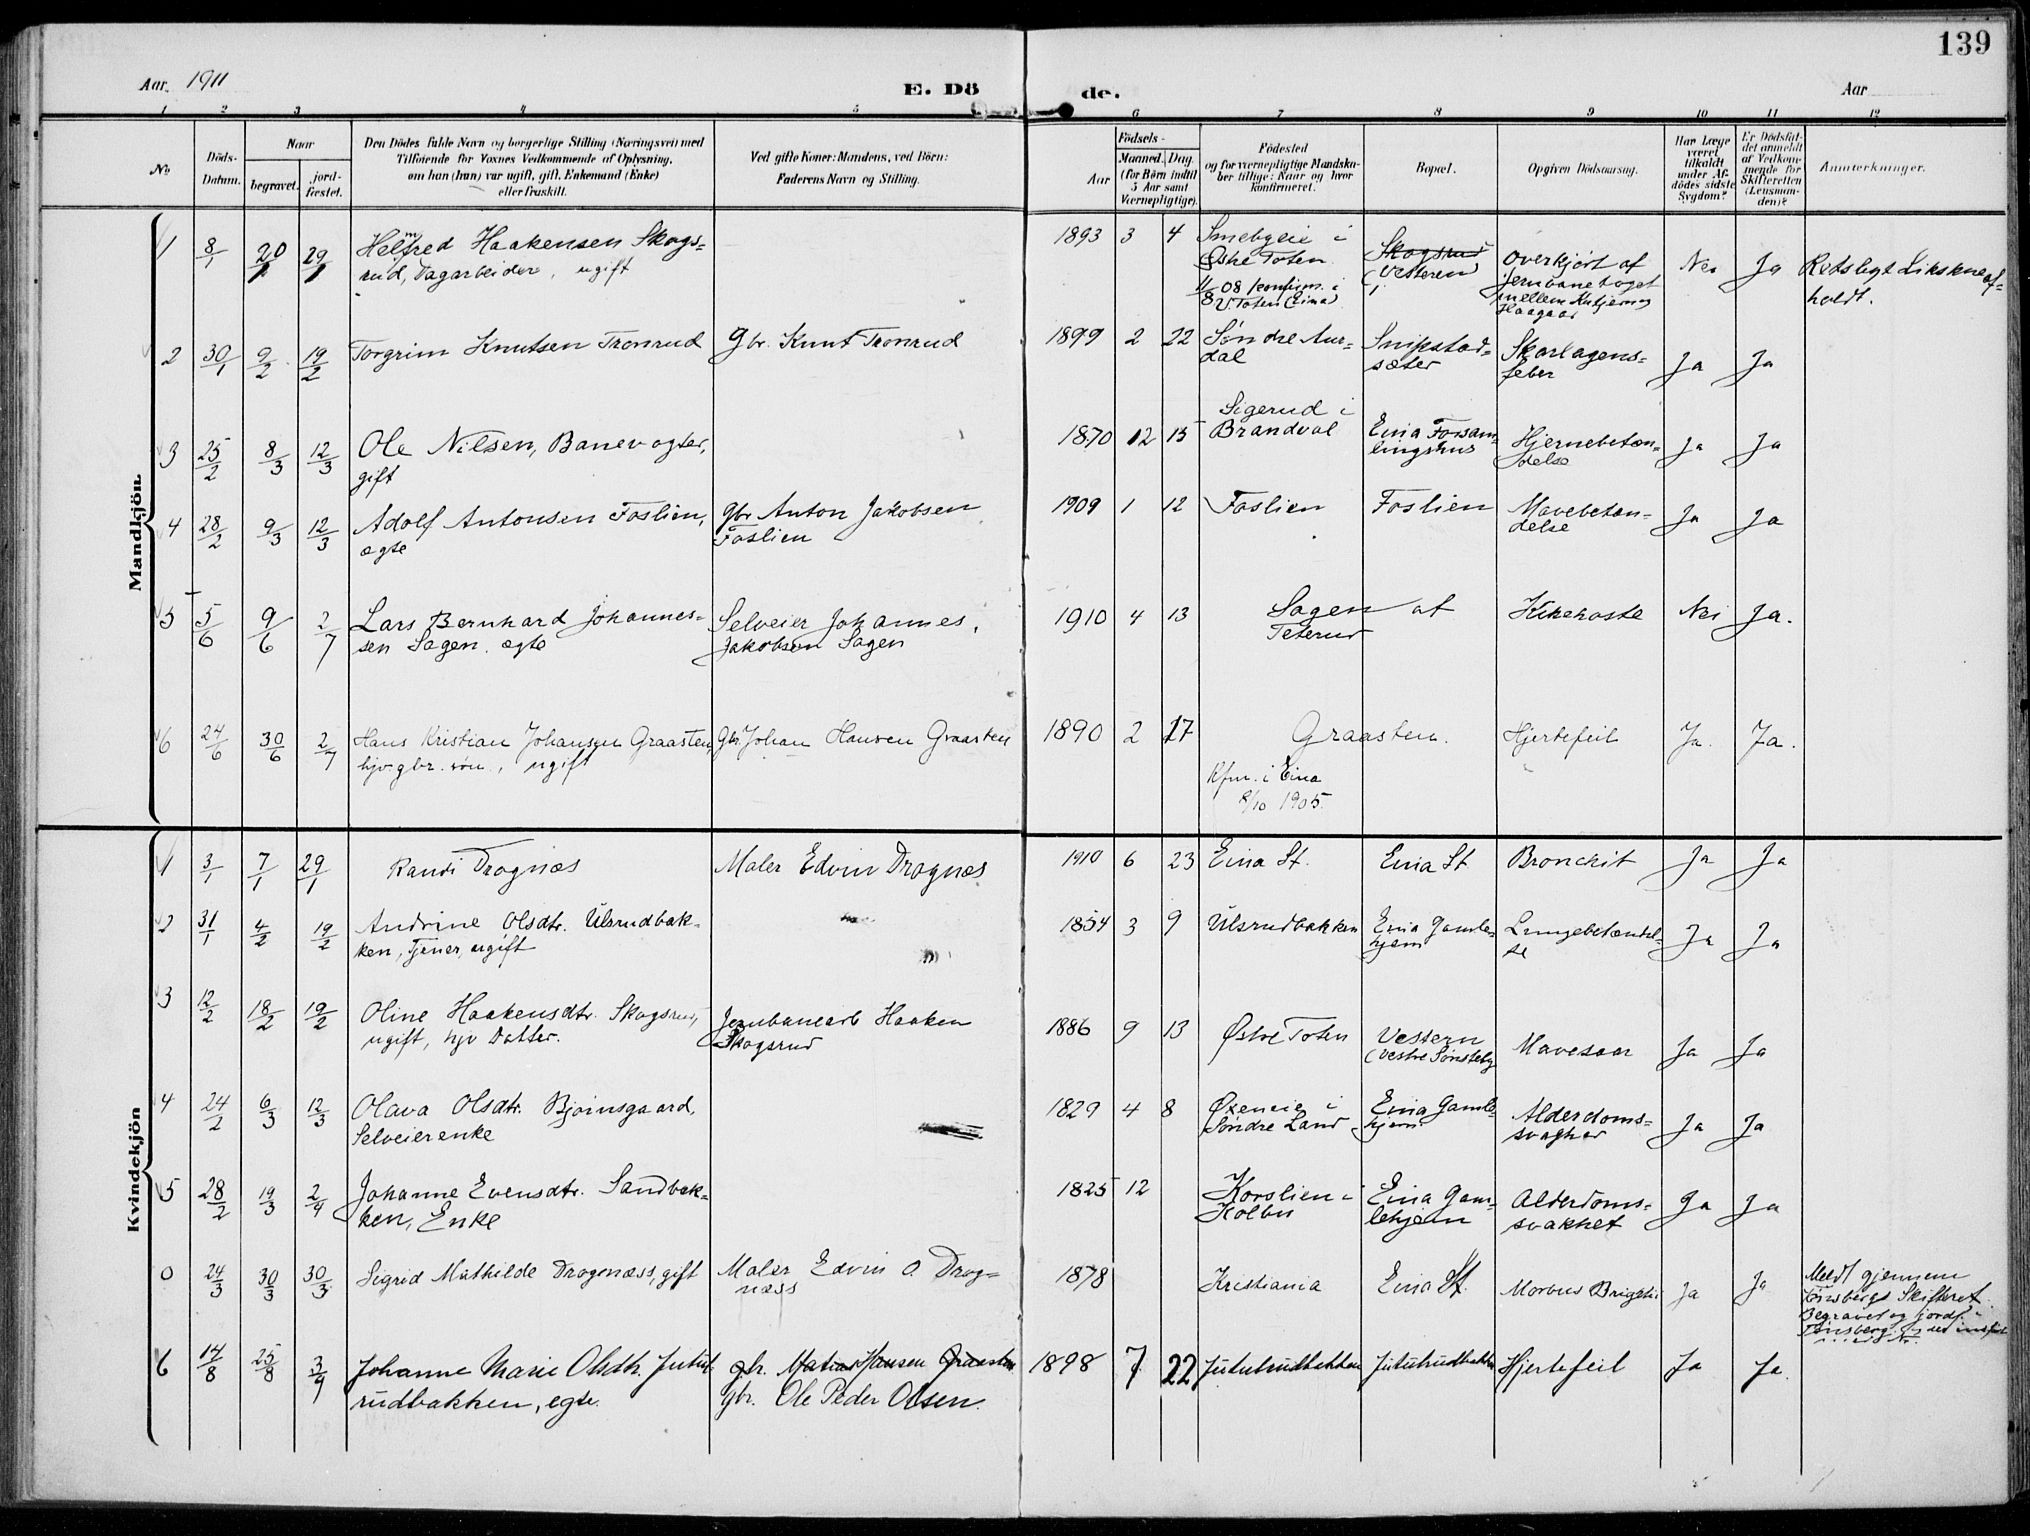 139
Aar 1911 E. Dö de. Aar
1 2 3 4 5 6 7 8 9 10 11 12
No
Döds-Datum.
Naar
begravet. jordfæstet.
Den Dödes fulde Navn og borgerlige Stilling (Næringsvei) med
Tilföiende for Voxnes Vedkommende af Oplysning,
om han (hun) var ugift, gift, Enkemand (Enke)
eller fraskilt.
Ved gifte Koner: Mandens, ved Börn:
Faderens Navn og Stilling.
Födsels-
Aar
Maaned. Dag.
(for Börn indtil
5 Aar samt
Værnepligtige).
Födested
og for værnepligtige Mandskaber tillige: Naar og hvor
konfirmeret.
Bopæl.
Opgiven Dödsaarsag.
Har Læge
været
tilkaldt
under Afdödes sidste
Sygdom?
Er Dödsfaldet anmeldt
af Vedkommende for
Skifteretten
(Lensmanden)?
Anmærkninger.
Mandkjön.
1 8/1 20/1 29/1 Helmfred Haakensen Skogs=
rud, Dagarbeider, ugift
1893 3 4 Smebyeie i
Østre Toten
08 konfirm. i
V. Toten (Eina)
Skogsrud
(Vesteren)
Overkjört af
Jernbanetoget
mellem
Haagaar
Nei Ja
Retsligt Likskue af=
holdt.
2 30/1 9/2 19/2 Torgrim Knutsen Tronrud Gbr. Knut Tronrud
1899 2 22 Søndre Aur=
dal
Snipstad=
sæter
Skarlagens=
feber
Ja Ja
3 25/2 8/3 12/3 Ole Nilsen, Banevogter,
gift
1870 12 15 Sigerud i
Brandval
Eina Forsam=
lingshus
Hjernebetæn=
delse
Ja Ja
4 28/2 9/3 12/3 Adolf Antonsen Foslien,
ægte
Gbr Anton Jakobsen
Foslien
1909 1 12 Foslien Foslien Mavebetæn=
delse
Ja Ja
5 5/6 9/6 2/7 Lars Bernhard Johannes=
sen Sagen. ægte
Selveier Johannes
Jakobsen Sagen
1910 4 13 Sagen af
Teterud
Kikehoste Nei Ja.
6 24/6 30/6 2/7 Hans Kristian Johansen Graasten,
hjv. gbr. søn, ugift
Gbr Johan Hansen Graasten
1890 2 17 Graasten.
Kfm. i Eina
8/10 1905.
Hjertefeil Ja. Ja.
Kvindekjön
1 3/1 7/1 29/1 Randi Drognæs Maler Edvin Drognæs
1910 6 23 Eina St. Eina St Bronchit Ja Ja
2 31/1 4/2 19/2 Andrine Olsdtr. Ulsrudbak=
ken, Tjener, ugift
1854 3 9 Ulsrudbakken Eina Gamle=
hjem
Lungebetændel=
se
Ja Ja
3 12/2 18/2 19/2 Oline Haakensdtr. Skogsrud,
ugift, hjv Datter.
Jernbanearb Haaken
Skogsrud
1886 9 13 Østre Toten Vestern
(Vestre Sønsteby
Mavesaar Ja Ja
4 24/2 6/3 12/3 Olava Olsdtr. Bjørnsgaard,
Selveierenke
1829 4 8 Øxeneie i
Søndre Land
Eina Gamle
hjem
Alderdoms=
svaghed
Ja Ja
5 28/2 19/3 2/4 Johanne Evensdtr. Sandbak=
ken, Enke
1825 12 Korslien i
Kolbu
Eina Gam=
lehjem
Alderdoms=
svakhet
Ja Ja
0 24/3 30/3 30/3 Sigrid Mathilde Drognæss, gift Maler Edvin O. Drog=
næss
1878 Kristiania Eina St. Morbus Brightii Ja Ja
Meldt gjennem
Tønsbergs Skifteret.
Begravet og jordf. i
Tønsberg
6 14/8 25/8 3/9 Johanne Marie Olsdtr. Jutul=
rudbakken, egte.
gbr. Matias Hansen Graasten
gbr. Ole Peder Olsen.
1898 7 22 Jutulrudbakken Jutulrudbakken Hjertefeil Ja Ja